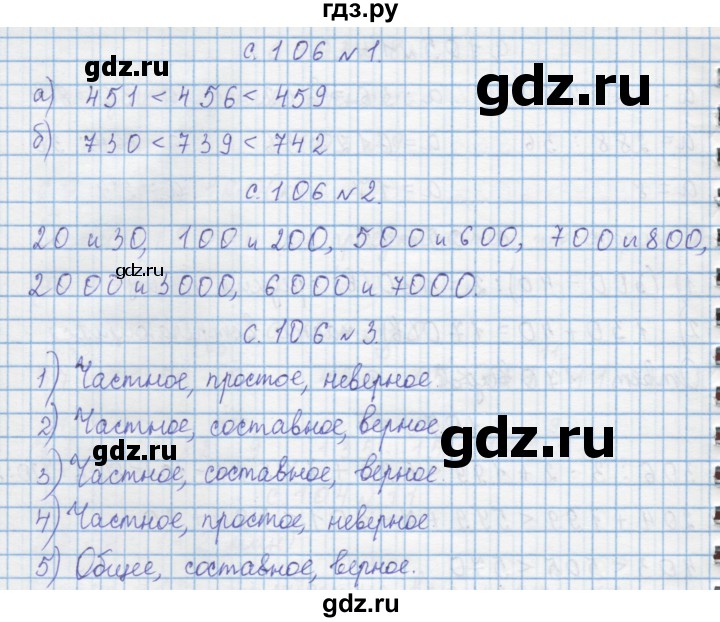 гдз.ру
с. 106 № 1.
gdz.ru
а) 451 < 456 < 459
gdz.ru
б) 730 < 739 < 742
с. 106 № 2.
20 и 30, 100 и 200, 500 и 600, 700 и 800,
gdz.ru
2000 и 3000, 6000 и 7000.
с. 106 № 3.
1) Частное, простое, неверное
2) Частное, составное, верное
gdz.ru
gdz.ru
3) Частное, составное, верное
4) Частное, простое, неверное
5) Общее, составное, верное.
gdz.ru